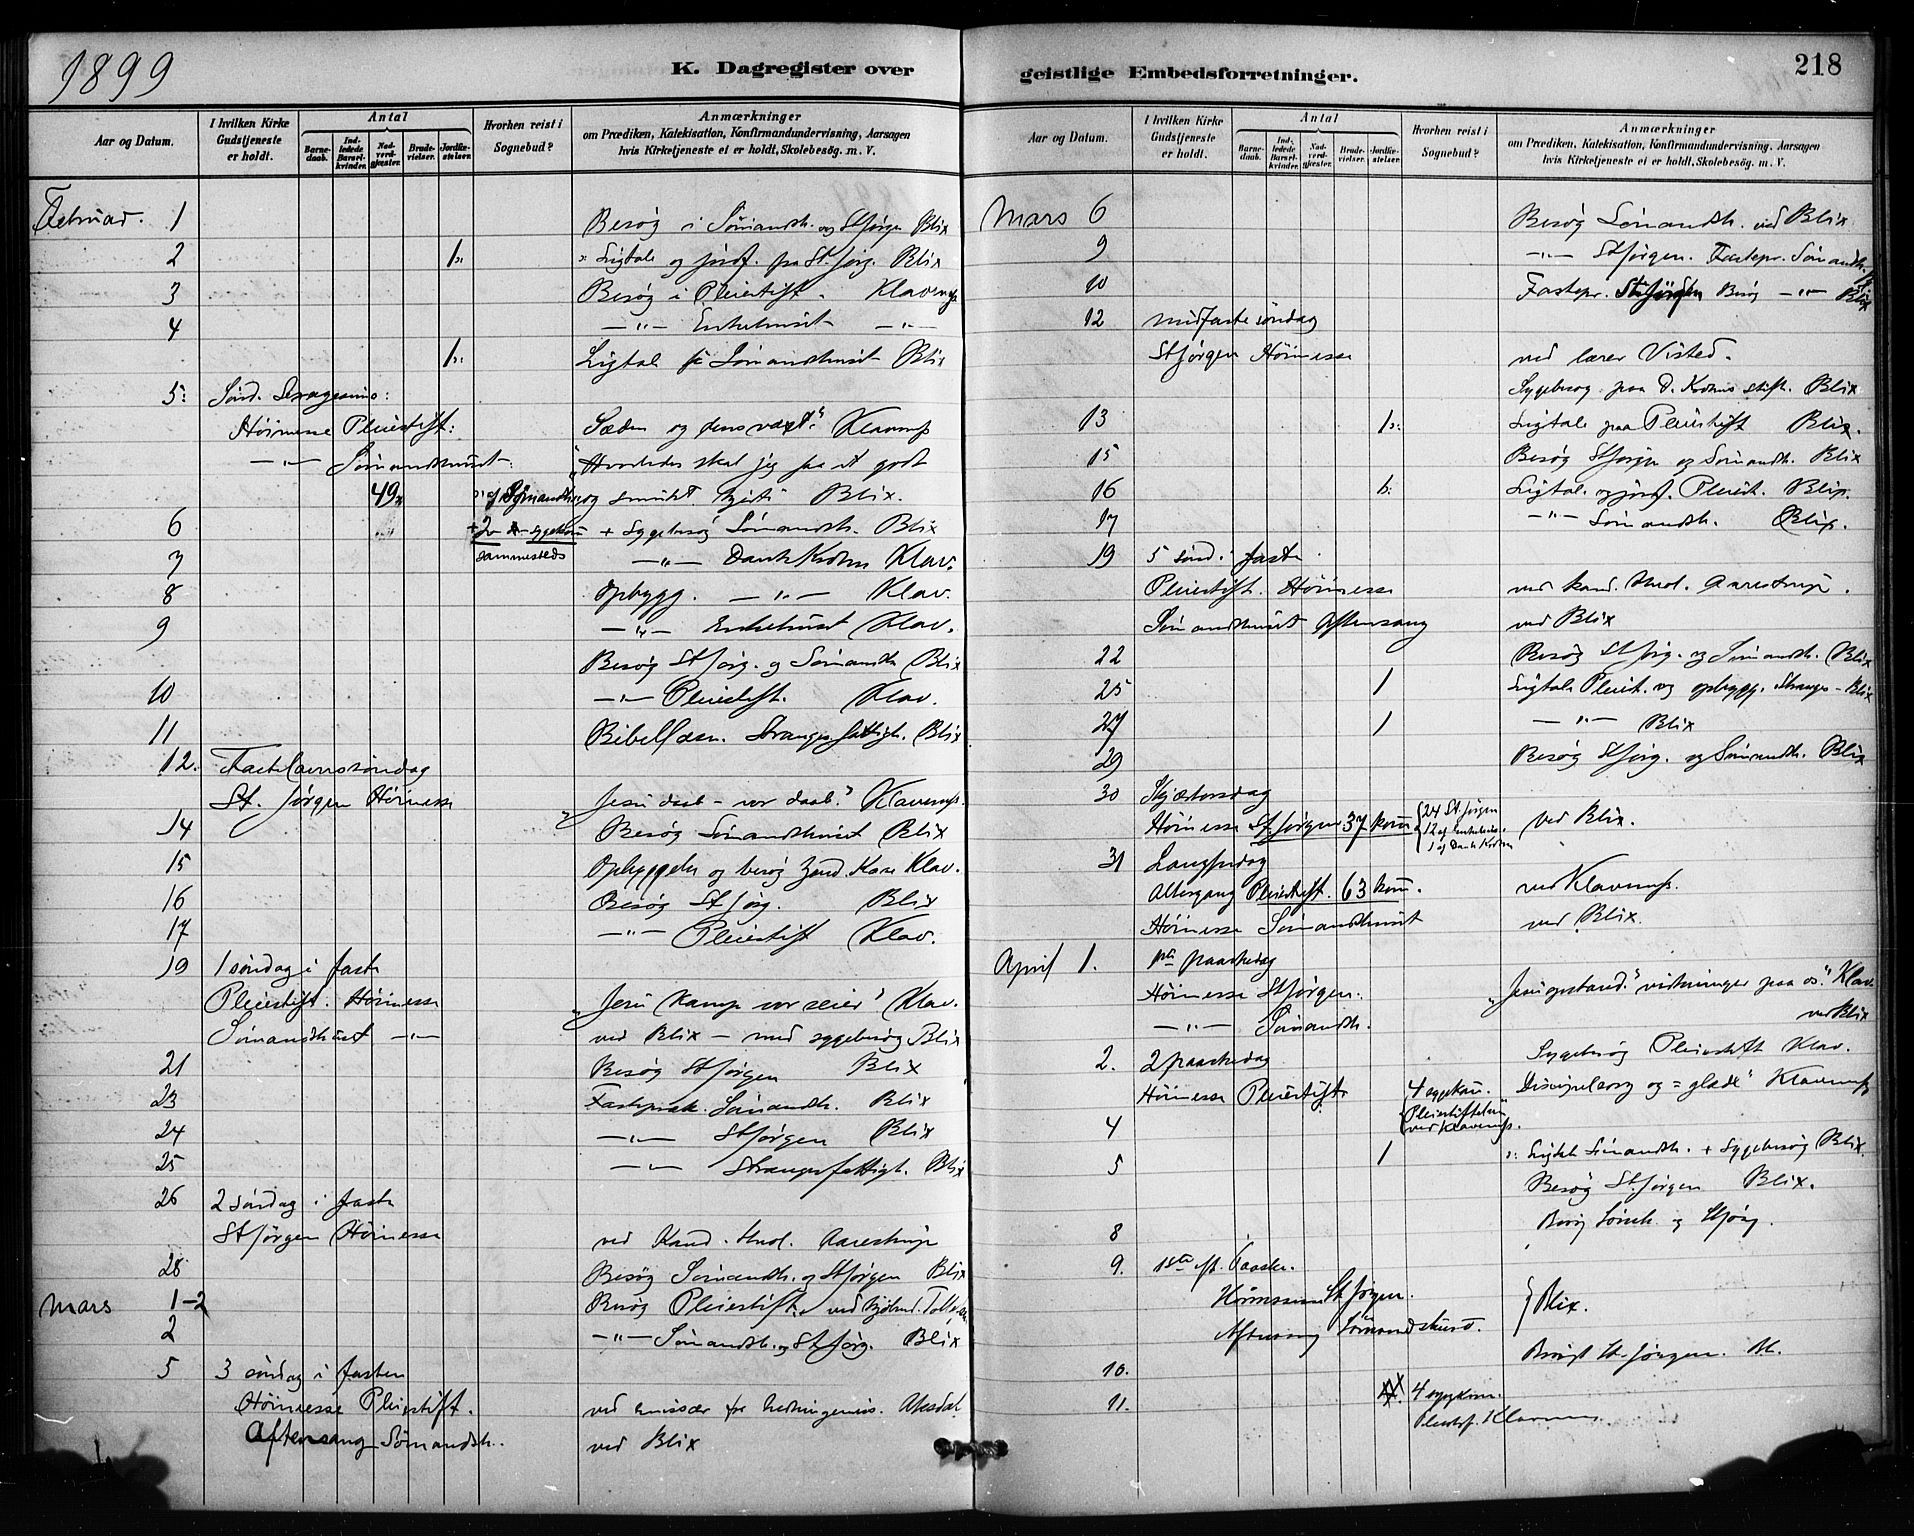 1899
K. Dagregister over
Aar og Datum.
I hvilken Kirke Gudstjeneste er holdt.
Antal
Barnedaab.
Indledede Barselkvinder.
Nadverdgjæster.
Brudevielser.
Jordfæstelser.
Hvorhen reist i Sognebud?
Anmærkninger
om Prædiken, Katekisation, Konfirmandundervisning, Aarsagen
hvis Kirketjeneste ei er holdt, Skolebesøg. m. V.
Februar. 1 Besøg i Sømandh. og St Jørgen Blix
2 1 Ligtale og jordf. paa St. Jørg. Blix
3 Besøg i Pleiestift. Klaveness
4 —"— Enkehuset —"—
1 Ligtale Sømandhuset Blix
5: Sønd. Sexagesima:
Høimesse Pleiestift: Sæden og dens vext." Klaveness
—"— Sømandhuset: "Hvorledes skal jeg faa et godt
49 af Sømandh. og smukt hjerte" Blix.
6 +2 sygekom + Sygebesøg Sømandh. Blix
7 sammesteds —"— Dankert Krohn Klav.
8 Opbygg. —"— Klav.
9 —"— Enkehuset Klav.
Besøg St Jørg. og Sømandh. Blix
10 —"— Pleiestift. Klav.
11 Bibellæsn. Stranges fattigh. Blix
12. Fastelavnssøndag
St. Jørgen Høimesse "Jesu daab - vor daab." Klaveness.
14 Besøg Sømandhuset Blix
15 Opbyggelse og besøg Zand. Kase Klav.
16 Besøg St Jørg. Blix
17 —"— Pleiestift Klav.
19 1 søndag i faste
Pleiestift. Høimesse "Jesu kamp vor seier" Klav.
Sømandhuset —"— ved Blix — med sygebesøg Blix
21 Besøg St Jørgen Blix
23 Fastepræk. Sømandh. Blix
24 —"— St Jørgen Blix
25 —"— Stranges fattigh. Blix
26 2 søndag i faste
St Jørgen Høimesse ved Kand. theol. Aarestrup
28 Besøg Sømandh. og St Jørgen Blix
Mars 1-2 Besøg Pleiestift. ved
2 —"— Sømandh. og St Jørg. Blix
5 3 søndag i fasten
Høimesse Pleiestift. ved emissær for hedningemis. Aksdal
Aftensang Sømandh. ved Blix
geistlige Embedsforretninger.
218
Aar og Datum.
I hvilken Kirke Gudstjeneste er holdt.
Antal
Barnedaab.
Indledede Barselkvinder.
Nadverdgjæster.
Brudevielser.
Jordfæstelser.
Hvorhen reist i Sognebud?
Anmærkninger
om Prædiken, Katekisation, Konfirmandundervisning, Aarsagen
hvis Kirketjeneste ei er holdt, Skolebesøg. m. V.
Mars 6 Besøg Sømandh. ved Blix
9 —"— St Jørgen. Fastepr. Sømandh.
10 Fastepr. St Jørgen Besøg —"— Blix
12 midfaste søndag
St Jørgen Høimesse ved lærer Visted.
Sygebesøg paa D. Krohns stift. Blix
13 1 Ligtale paa Pleiestift Blix.
15 Besøg St Jørgen og Sømandh. Blix
16 1 Ligtale og jordf. Pleiest. Blix.
17 —"— Sømandh. Blix.
19 5 sønd. i faste
Pleiestift. Høimesse ved kand. theol. Aarestrup.
Sømandhuset Aftensang ved Blix
22 Besøg St Jørg. og Sømandh. Blix
25 1 Ligtale Pleiest. og opbygg. Stranges - Blix
27 1 —"— Blix
29 Besøg St Jørg. og Sømandh. Blix
30 Skjærtorsdag
Høimesse St Jørgen 37 kom { 24 St. Jørgen ved Blix.
12 af Enkehus.
1 af Dank Krohn
31 Langfredag
Altergang Pleiestift. 63 kom. ved Klaveness.
Høimesse Sømandhuset ved Blix.
April 1. 1ste paaskedag
Høimesse St Jørgen: "Jesu opstand." virkninger paa os". Klav.
—"— Sømandh. ved Blix
2. 2 paaskedag Sygebesøg Pleiestift Klav.
Høimesse Pleiestift 4 sygekom. Disciplesorg og = glæde" Klaveness
4 Pleiestiftelsen
ved Klaveness.
5 1 Ligtale Sømandh. + Sygebesøg Blix.
Besøg St. Jørgen Blix.
8 Besøg Sømh. og St Jørg.
9. 1ste eft. Paaske.
Høimesse St Jørgen. } Blix.
Aftensang Sømandshuset.
10. Besøgt St. Jørgen. Bl.
11. 4 sygekom.
Pleiestif. Klaveness